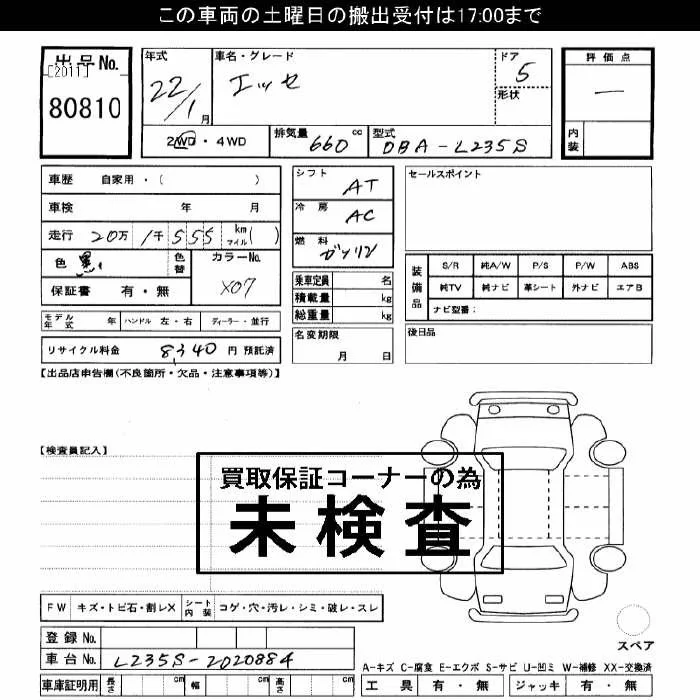 この車両の土曜日の搬出受付は17:00まで
出品No.
[2011]
80810
年式
22/1月
車名・グレード
エッセ
ドア
5
形状
2WD・4WD
排気量 660 cc
型式 DBA-L235S
評価点
—
内装
車歴 自家用・( )
車検 年 月
走行 20万 1千 555 km マイル( )
色 黒
色替
カラーNo.
X07
保証書 有・無
モデル年式 年
ハンドル 左・右
ディーラー・並行
リサイクル料金 8,340 円 預託済
シフト AT
冷房 AC
燃料 ガソリン
乗車定員 名
積載量 kg
総重量 kg
名変期限
月 日
セールスポイント
装備品
S/R 純A/W P/S P/W ABS
純TV 純ナビ 革シート 外ナビ エアB
ナビ型番:
後日品
【出品店申告欄(不良箇所・欠品・注意事項等)】
【検査員記入】
買取保証コーナーの為
未検査
FW キズ・トビ石・割レX
シート内装 コゲ・穴・汚レ・シミ・破レ・スレ
スペア
登録No.
車台No. L235S-2020884
車庫証明用 長さ cm 幅 cm 高さ cm
A-キズ C-腐食 E-エクボ S-サビ U-凹ミ W-補修 XX-交換済
工具 有・無 ジャッキ 有・無